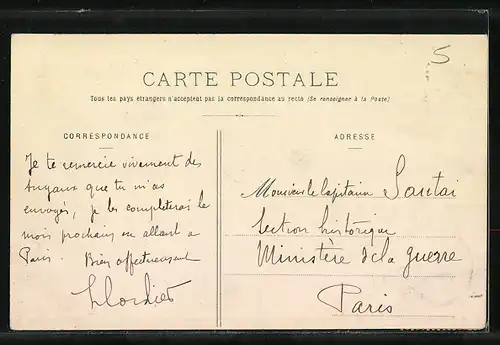 5
CARTE POSTALE
Tous les pays étrangers n'acceptent pas la correspondance au recto (Se renseigner à la Poste)
CORRESPONDANCE
Je te remercie vivement des
tuyaux que tu m'as
envoyés, je les compléterai le
mois prochain en allant à
Paris. Bien affectueusement
ADRESSE
Monsieur le Capitaine Sautai
Section historique
Ministère de la guerre
Paris